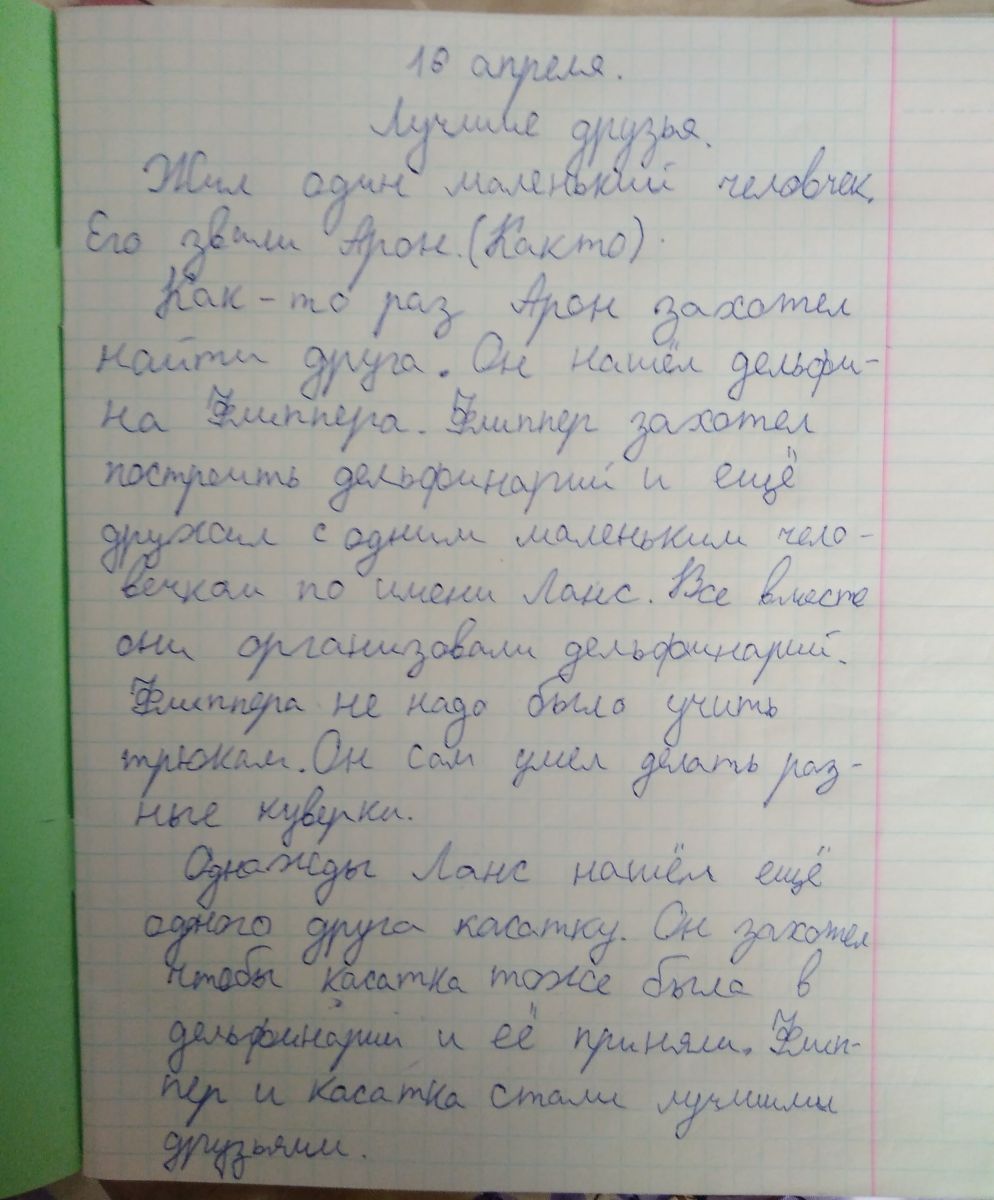 16 апреля.
Лучшие друзья.
Жил один маленький человчек.
Его звали Арон. (Както).
Как-то раз Арон захотел
найти друга. Он нашёл дельфи-
на Флиппера. Флиппер захотел
построить дельфинарий и ещё
дружил с одним маленьким чело-
вечком по имени Ланс. Все вместе
они организовали дельфинарий.
Флиппера не надо было учить
трюкам. Он сам умел делать раз-
ные куверки.
Однажды Ланс нашёл ещё
одного друга касатку. Он захотел
чтобы касатка тоже была в
дельфинарий и её приняли. Флип-
пер и касатка стали лучшими
друзьями.